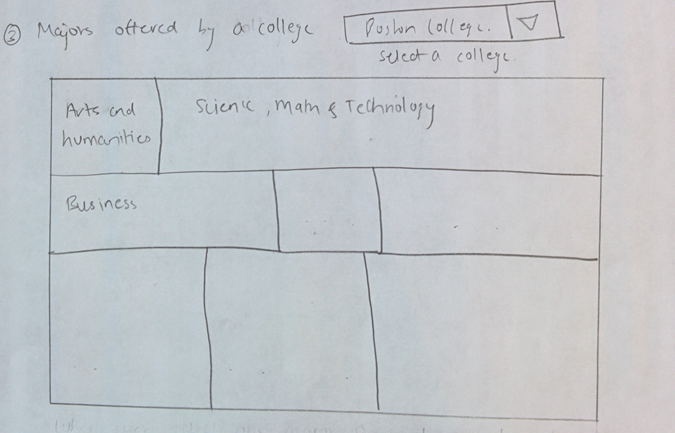 ② Majors offered by a college
Boston College.
select a college.
Arts and
humanities
Science, Math & Technology
Business